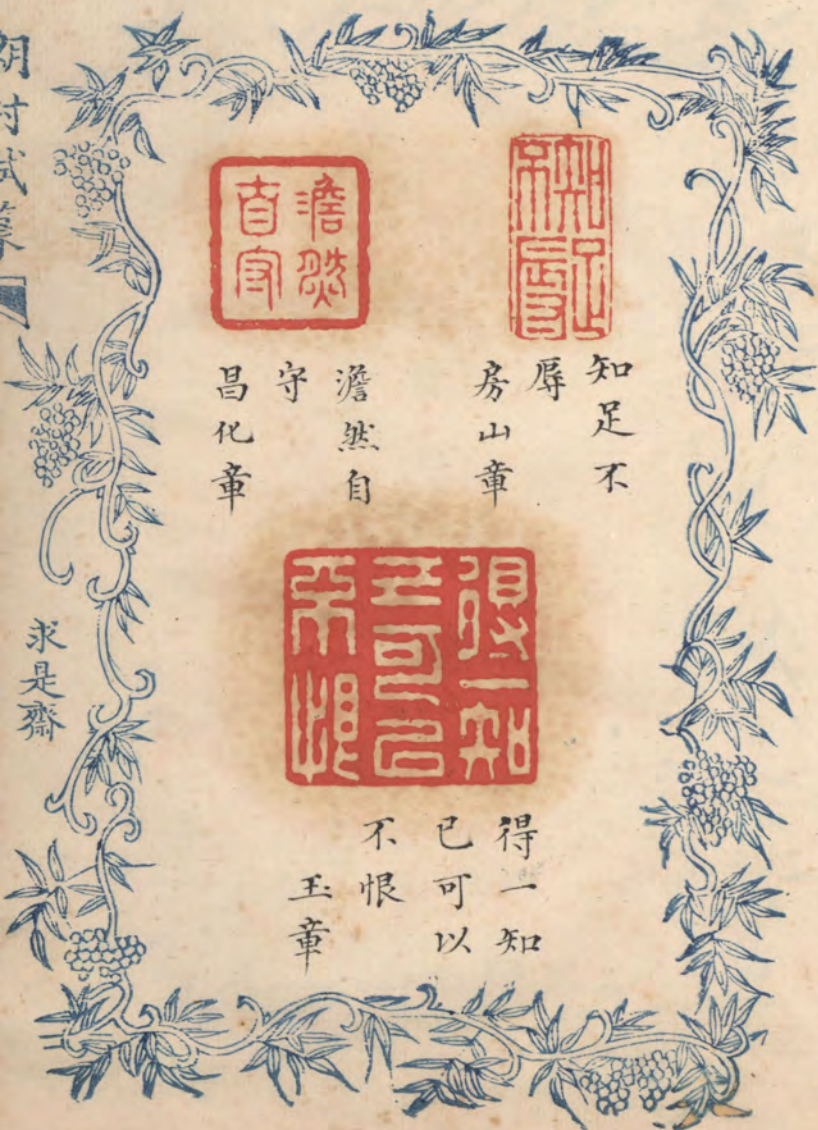 知足
不辱
知足不
辱
房山章
澹然
自守
澹然自
守
昌化章
得一知
己可以
不恨
得一知
已可以
不恨
玉章
村試篆
求是齋